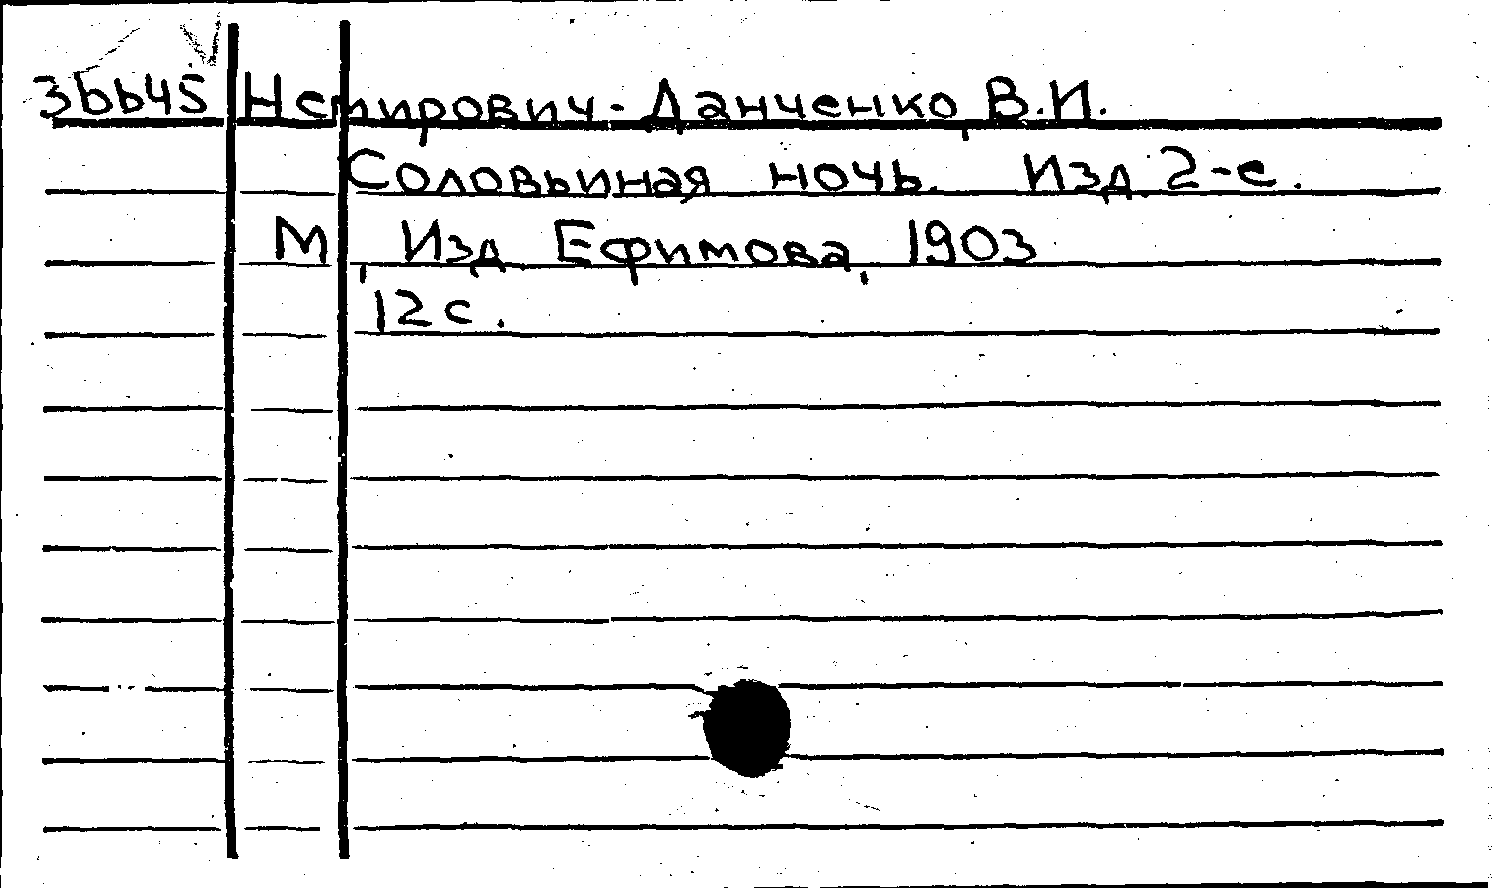 36645 Немирович-Данченко, В.И.
Соловьиная ночь. Изд 2-е.
М, Изд Ефимова, 1903
12 с.